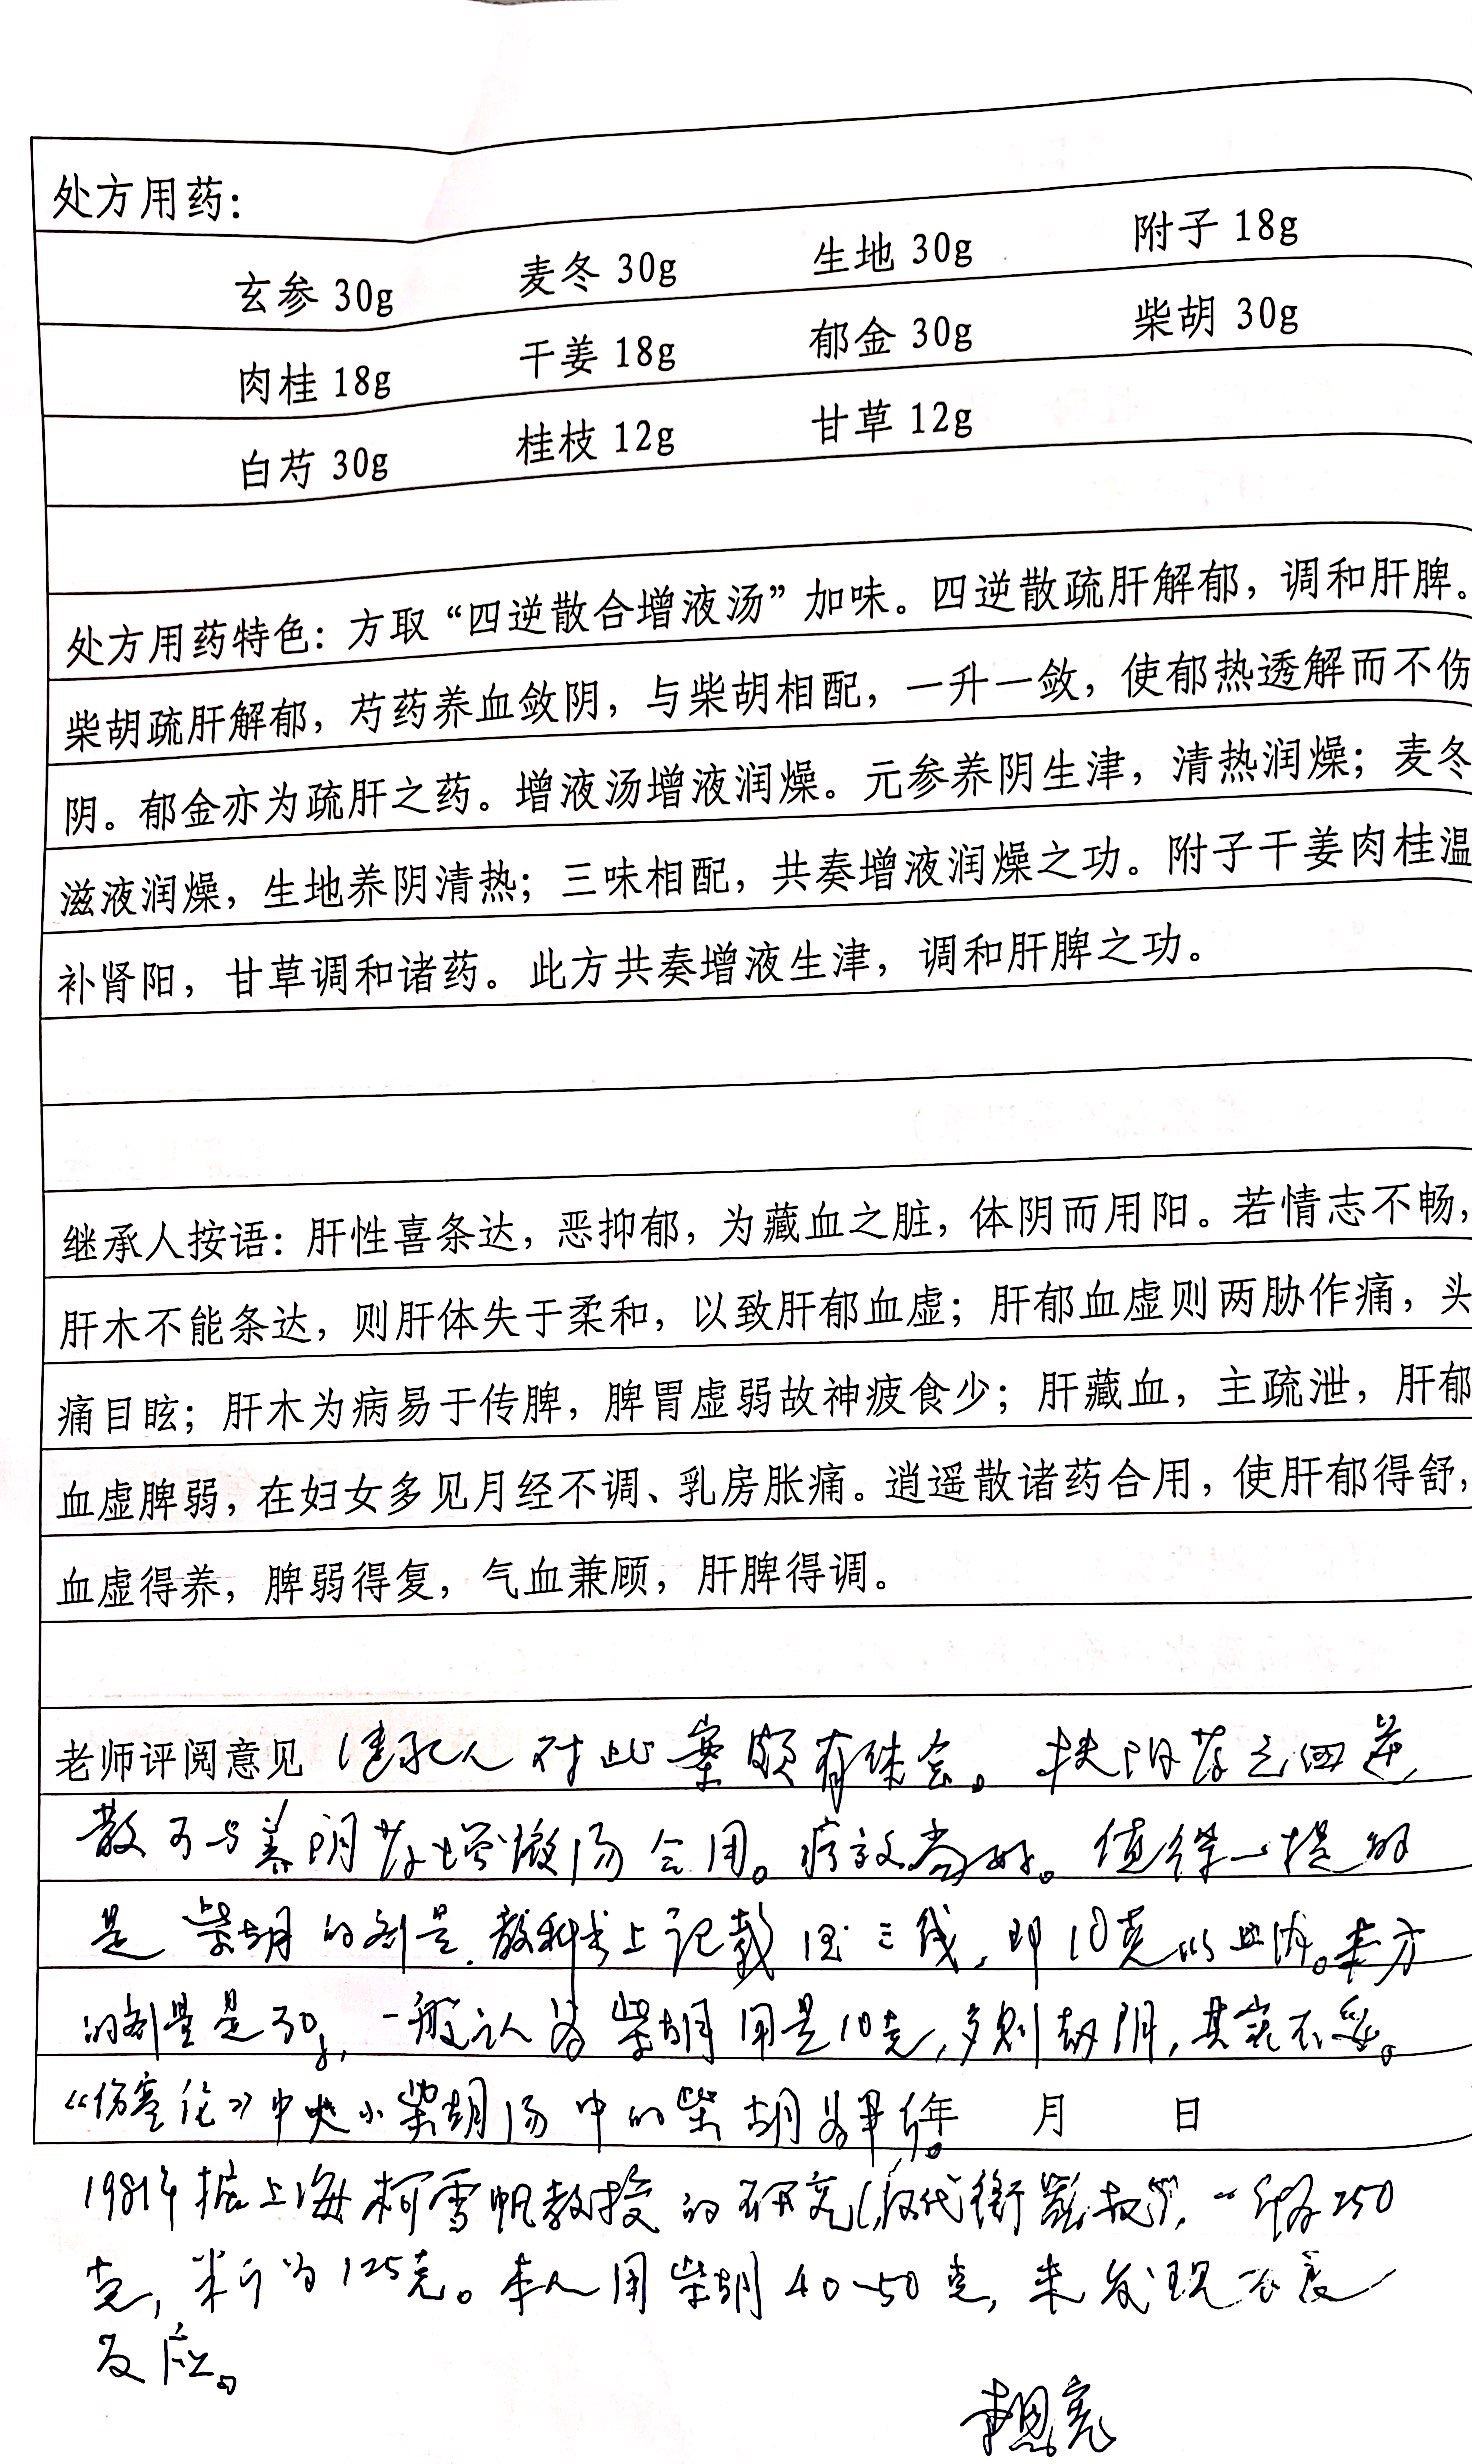 处方用药：
玄参 30g 麦冬 30g 生地 30g 附子 18g
肉桂 18g 干姜 18g 郁金 30g 柴胡 30g
白芍 30g 桂枝 12g 甘草 12g
处方用药特色：方取“四逆散合增液汤”加味。四逆散疏肝解郁，调和肝脾。
柴胡疏肝解郁，芍药养血敛阴，与柴胡相配，一升一敛，使郁热透解而不伤
阴。郁金亦为疏肝之药。增液汤增液润燥。元参养阴生津，清热润燥；麦冬
滋液润燥，生地养阴清热；三味相配，共奏增液润燥之功。附子干姜肉桂温
补肾阳，甘草调和诸药。此方共奏增液生津，调和肝脾之功。
继承人按语：肝性喜条达，恶抑郁，为藏血之脏，体阴而用阳。若情志不畅，
肝木不能条达，则肝体失于柔和，以致肝郁血虚；肝郁血虚则两胁作痛，头
痛目眩；肝木为病易于传脾，脾胃虚弱故神疲食少；肝藏血，主疏泄，肝郁
血虚脾弱，在妇女多见月经不调、乳房胀痛。逍遥散诸药合用，使肝郁得舒，
血虚得养，脾弱得复，气血兼顾，肝脾得调。
老师评阅意见 承人对此案颇有体会。扶阳 之四逆
散可与养阴 增液汤合用。疗效尚好。值得一提的
是柴胡的剂量，教科书上记载 三钱，即10克 。本方
的剂量是30g，一般认为柴胡用量10克，多则劫阴，其实不妥。
《伤寒论》中 小柴胡汤中的柴胡为半斤。 年 月 日
1981年据上海柯雪帆教授的研究（汉代衡器 ），一斤为250
克，半斤为125克。本人用柴胡40~50克，未发现不良
反应。